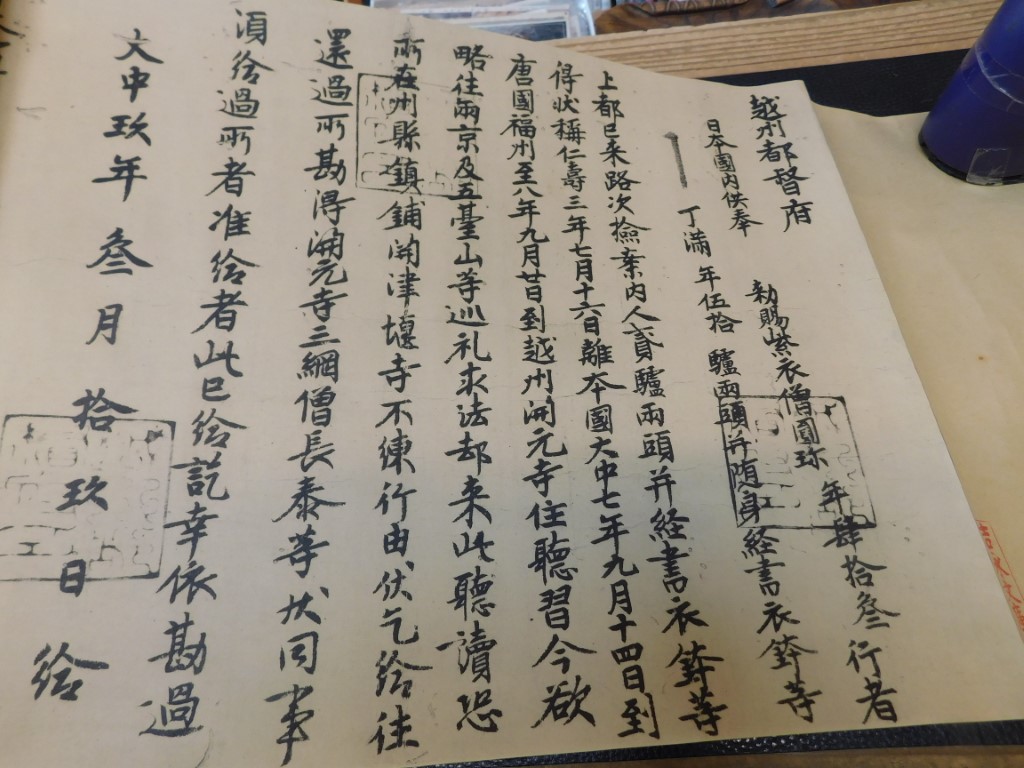 越州都督府
日本國内供奉 勅賜紫衣僧圓珎 年肆拾叁 行者
丁滿 年伍拾 驢兩頭并随身經書衣鉢等
上都已来路次撿案内人賷驢兩頭并經書衣鉢等
得狀稱仁壽三年七月十六日離夲國大中七年九月十四日到
唐國福州至八年九月廿日到越州開元寺住聽習今欲
略往兩京及五臺山等巡礼求法却来此聽讀恐
所在州縣鎮鋪關津堰寺不練行由伏乞給往
還過所勘得開元寺三綱僧長泰等狀同事
須給過所者准給者此已給訖幸依勘過
大中玖年叁月拾玖日給